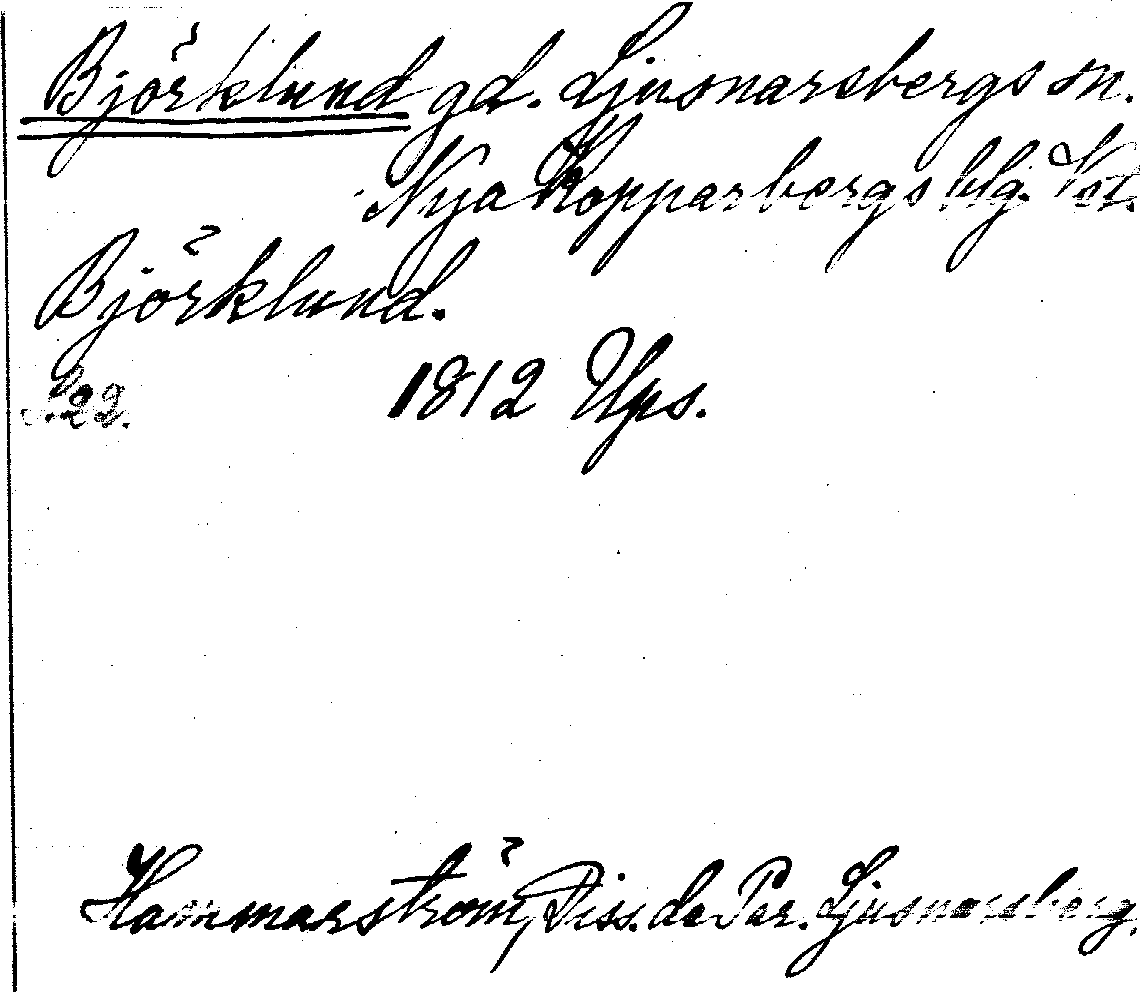 Björklund gd. Ljusnarsbergs sn.
Nya Kopparbergs blg. Vstm.
Björklund.
S. 22. 1812 Ups.
Hammarström, Diss. de Par. Ljusnarsberg.